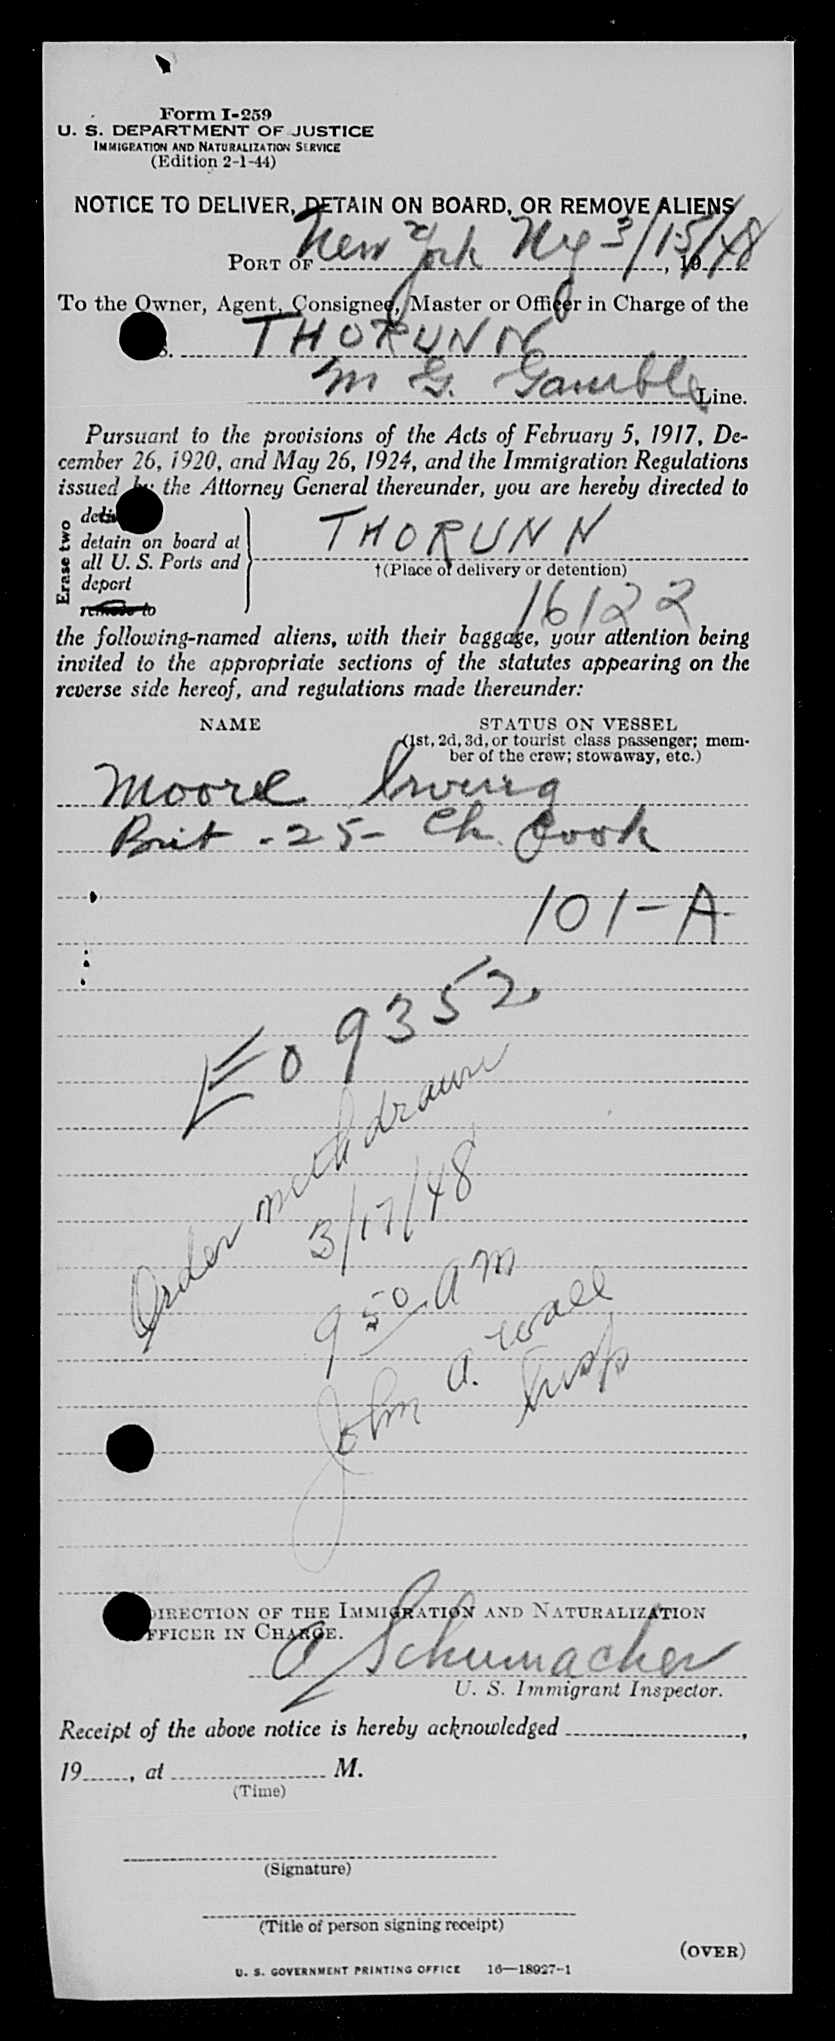 Form I-259
U. S. DEPARTMENT OF JUSTICE
IMMIGRATION AND NATURALIZATION SERVICE
(Edition 2-1-44)
NOTICE TO DELIVER, DETAIN ON BOARD, OR REMOVE ALIENS
PORT OF New York Ny 3/15/48, 19
To the Owner, Agent, Consignee, Master or Officer in Charge of the
S. THORUNN
M G. Gamble Line.
Pursuant to the provisions of the Acts of February 5, 1917, De-
cember 26, 1920, and May 26, 1924, and the Immigration Regulations
issued by the Attorney General thereunder, you are hereby directed to
Erase two
detain on board at
all U. S. Ports and
deport
remove to
THORUNN
†(Place of delivery or detention)
16122
the following-named aliens, with their baggage, your attention being
invited to the appropriate sections of the statutes appearing on the
reverse side hereof, and regulations made thereunder:
NAME STATUS ON VESSEL
(1st, 2d, 3d, or tourist class passenger; mem-
ber of the crew; stowaway, etc.)
Moore Irving
Brit - 25 - Ch. Cook
101-A
E09352
Order withdrawn
3/17/48
9 50 am
John A. Wall
Insp
DIRECTION OF THE IMMIGRATION AND NATURALIZATION
OFFICER IN CHARGE.
Schumacher
U. S. Immigrant Inspector.
Receipt of the above notice is hereby acknowledged ,
19 , at M.
(Time)
(Signature)
(Title of person signing receipt)
(OVER)
U. S. GOVERNMENT PRINTING OFFICE 16—18927-1